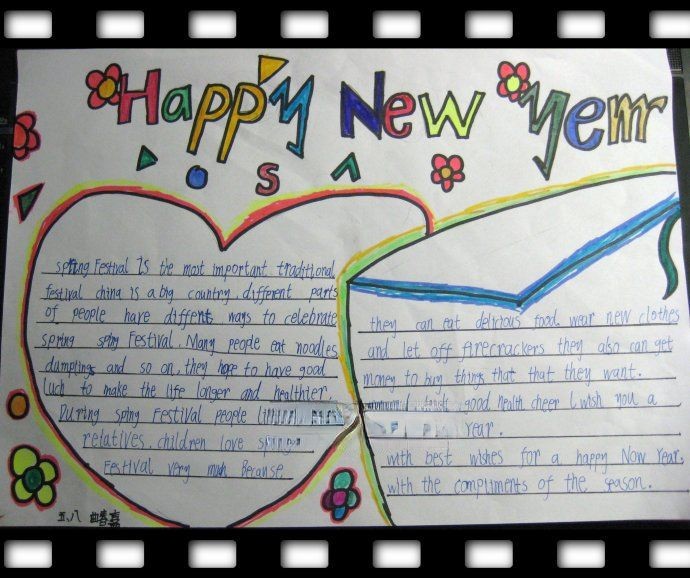 Happy New Yemr
spring Festival Is the most important traditional
festival china is a big country different parts
of people have different ways to celebrate
spring sping Festival. Many people eat noodles
dumplings and so on, they hope to have good
luck to make the life longer and healthier
During sping Festival people
relatives. children love
Festival very much Because
they can eat delicious food wear new clothes
and let off firecrackers they also can get
money to buy things that that they want.
good health cheer I wish you a
Year.
with best wishes for a happy Now Year,
with the compliments of the season.
五、八